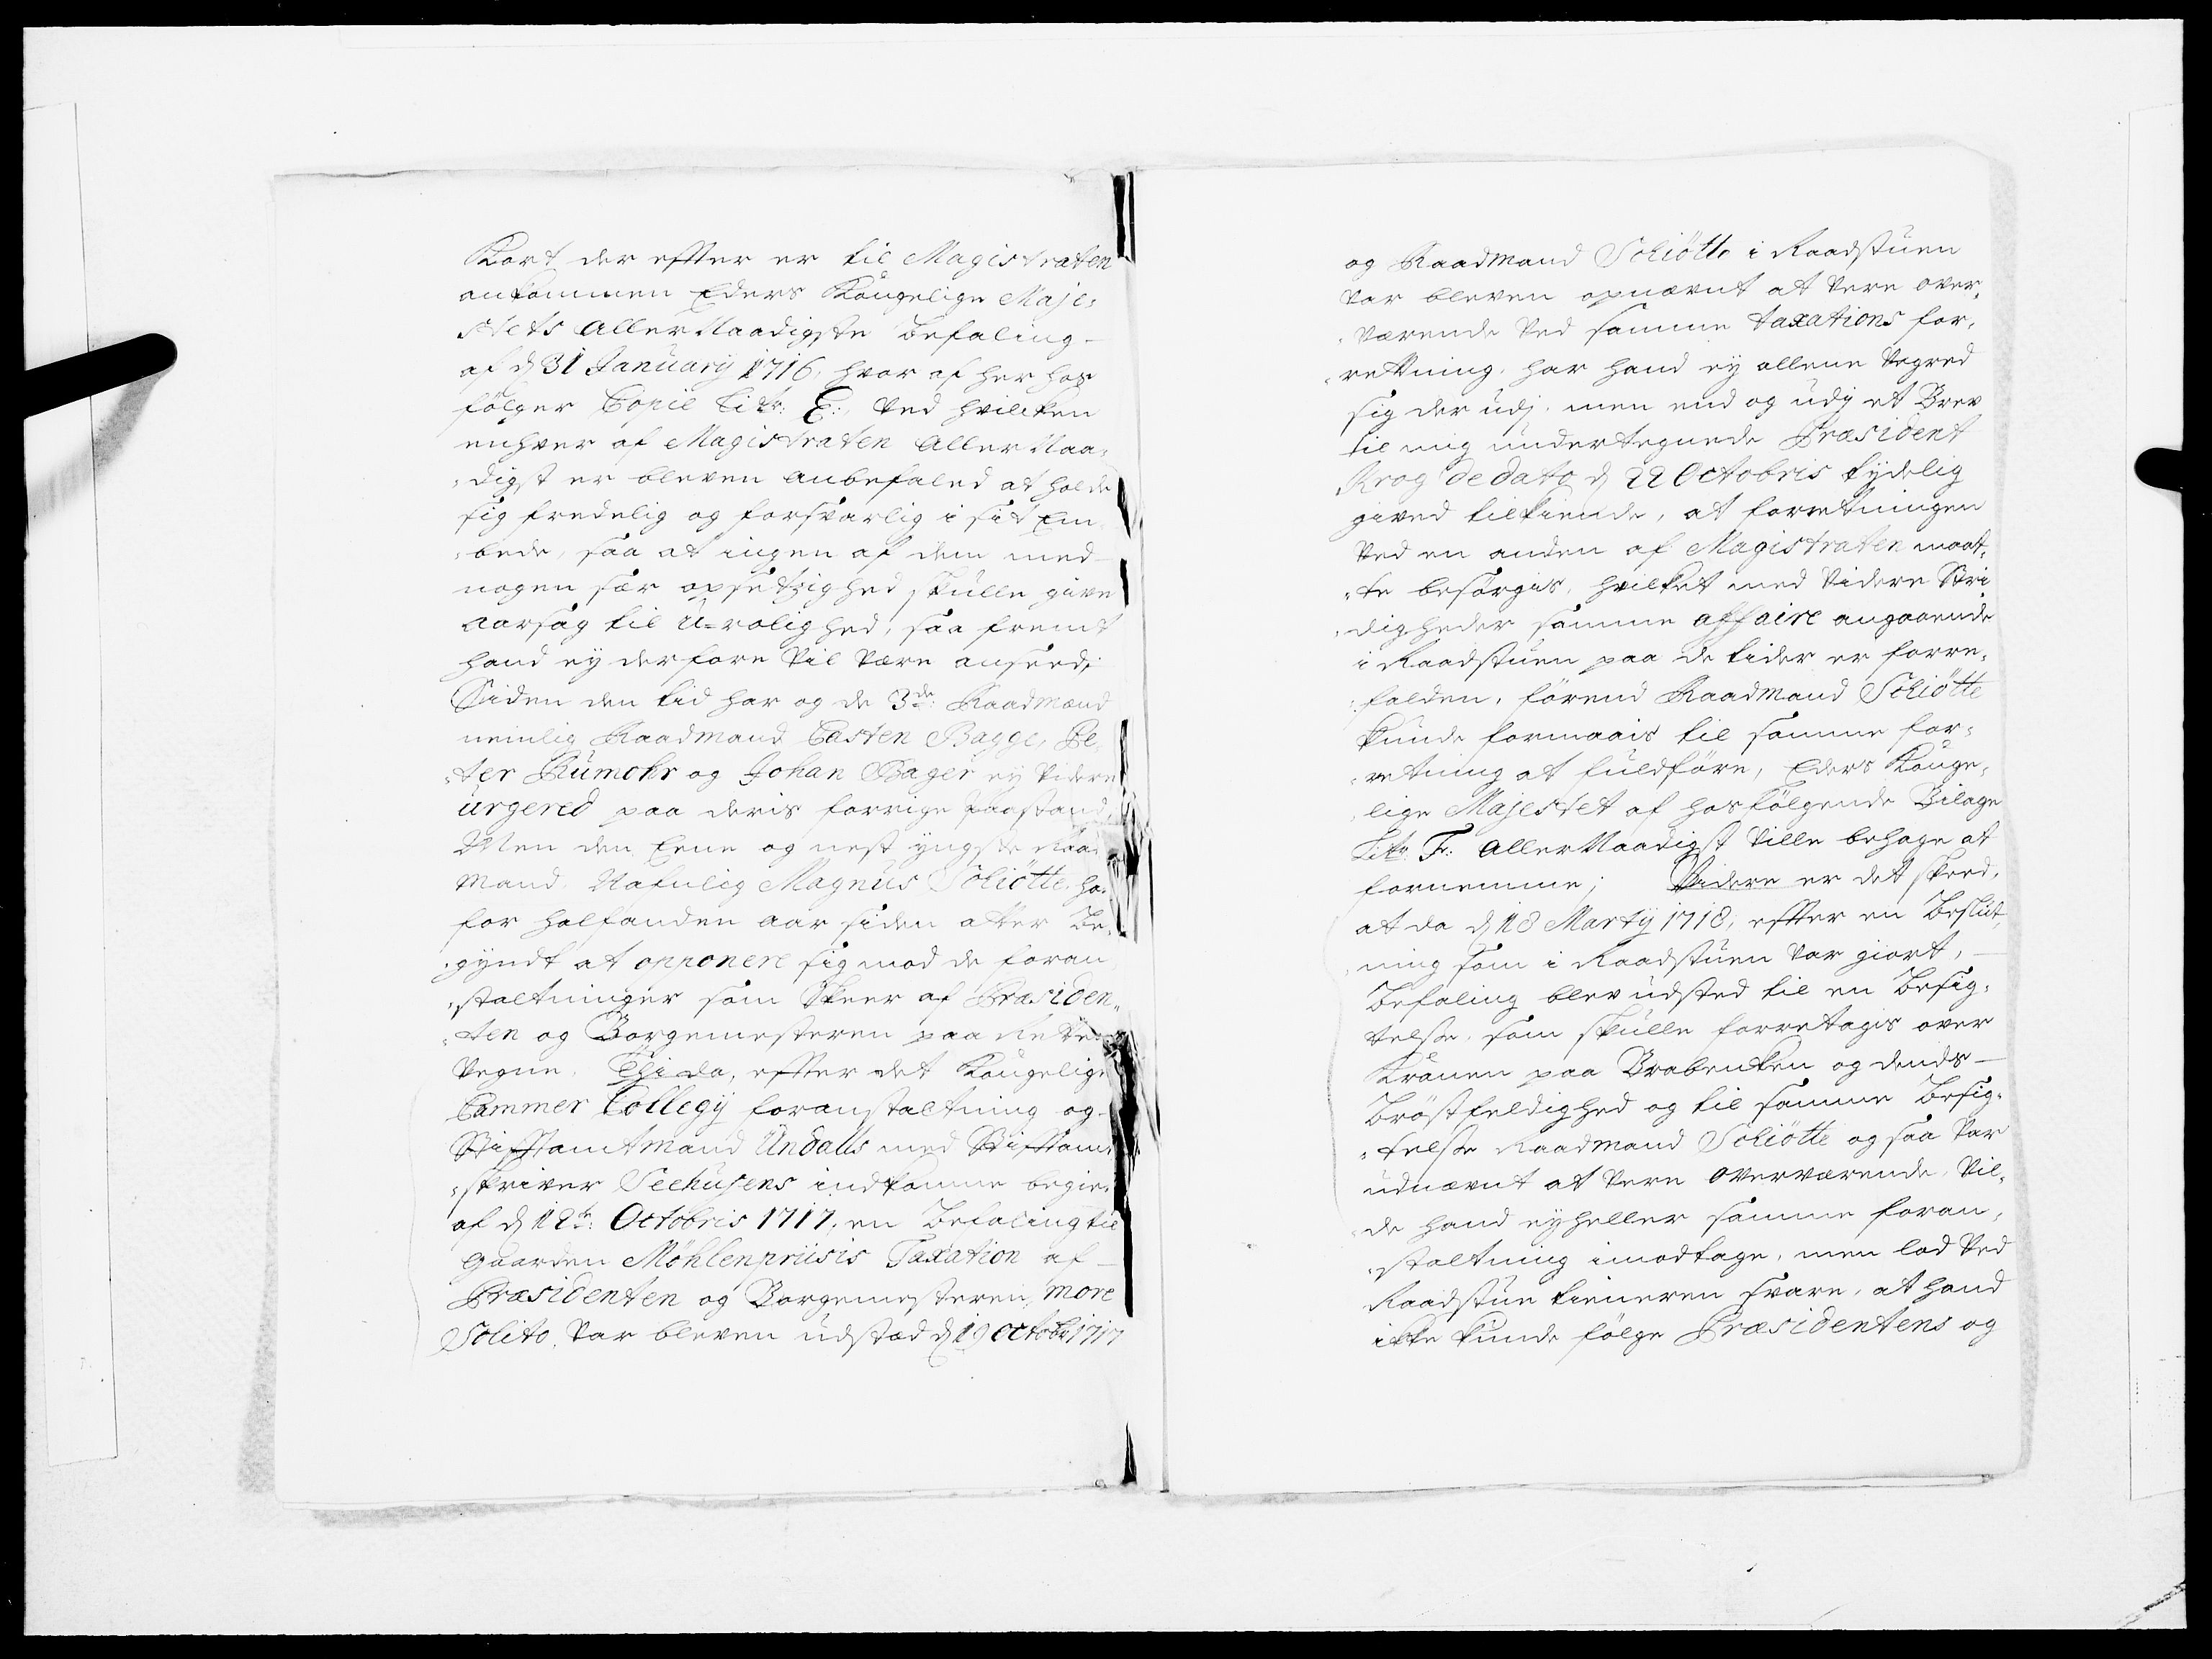 Kort der effter er til Magistraten
ankommen Eders Kongelige Maje,
stets AllerNaadigste Befaling
af d 31 January 1716, hvor af her hos
følger Copie Litr: E:, ved hvilken
enhver af Magistraten AllerNaa,
,digst er bleven anbefaled at holde
sig fredelig og forsvarlig i sit Em
,bede, saa at ingen af dem med
nogen sær opsetzighed skulle give
Aarsag til U=rolighed, saa fremt
hand ey derfore vil være anseed;
Siden den tid har og de 3de: Raadmænd
nemlig Raadmand Casten Bagge, Pe,
,ter Rumohr og Johan Bager ey videre
urgered paa deris forrige paastand,
Men den Eene og nest yngste Raad
mand, Nafnlig Magnus Schiøtte, ha,
for halfanden aar siden atter Be,
,gyndt at opponere sig mod de foran
,staltninger som skeer af Præsiden,
,ten og Borgemesteren paa Rettens
vegne. Thi da, effter det Kongelige
Cammer Collegy foranstaltning og
Stifftamtmand Undalls med Stifftam,
,skriver Seehusens indkomne begier,
af d 12te: Octobris 1717, en Befaling til
gaarden Møhlenpriisis Taxation af
Præsidenten og Borgemesteren, more
Solito, var bleven udstæd d 19 octobr 1717
og Raadmand Schiøtte i Raadstuen
var bleven opnævnt at være over,
,værende ved samme taxations for,
,rettning, har hand ey allene vegred
sig der udj, men end og udj et Brev
til mig undertegnede Præsident
Krog de dato d 22 Octobris tydelig
gived tilkiende, at forretningen
ved en anden af Magistraten maat,
,te besørgis, hvilket med videre Stri
,digheder samme affaire angaaende
i Raadstuen paa de tider er forre,
,falden, førend Raadmand Schiøtte
kunde formaais til samme for,
,retning at fuldføre, Eders Konge,
,lige Majestet af hosfølgende Bilage
Litr: F: AllerNaadigst ville behage at
fornemme; Videre er det skeed,
at da d 18 Marty 1718, effter en Beslut,
,ning som i Raadstuen var giort,
Befaling blev udsted til en Besig,
telse, som skulle forretages over
Kranen paa Brabenken og dends
Brøstfeldighed og til samme Besig,
,telse Raadmand Schiøtte og saa var
udnævnt at være overværende, vil,
,de hand ey heller samme foran,
,staltning imodtage, men lod ved
Raadstue tieneren svare, at hand
ikke kunde følge Præsidentens og